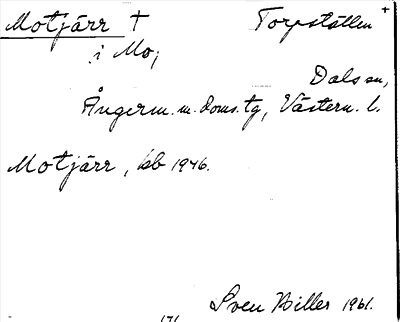 Motjärr † Torpställen +
i Mo;
Dals sn,
Ångerm. m. doms. tg, Västern. l.
Motjärr, kb 1946.
Sven Biller 1961.
171